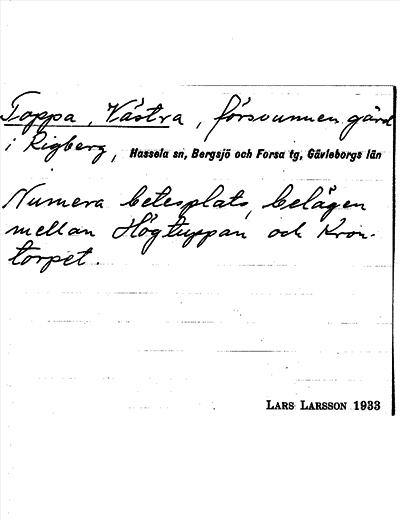 Toppa, Västra, försvunnen gård
i Rigberg, Hassela sn, Bergsjö och Forsa tg, Gävleborgs län
Numera betesplats, belägen
mellan Högtuppan och Kron-
torpet.
LARS LARSSON 1933